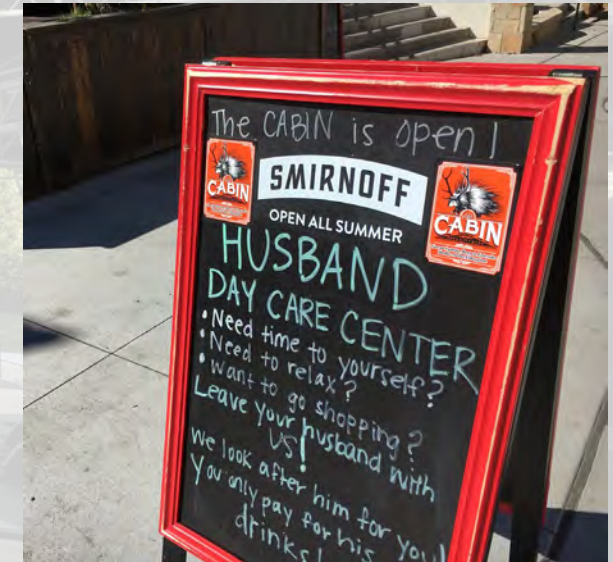 The CABIN is open!
CABIN
SMIRNOFF
OPEN ALL SUMMER
CABIN
HUSBAND
DAY CARE CENTER
• Need time to yourself?
• Need to relax?
• Want to go shopping?
Leave your husband with
US!
We look after him for you!
You only pay for his
drinks!